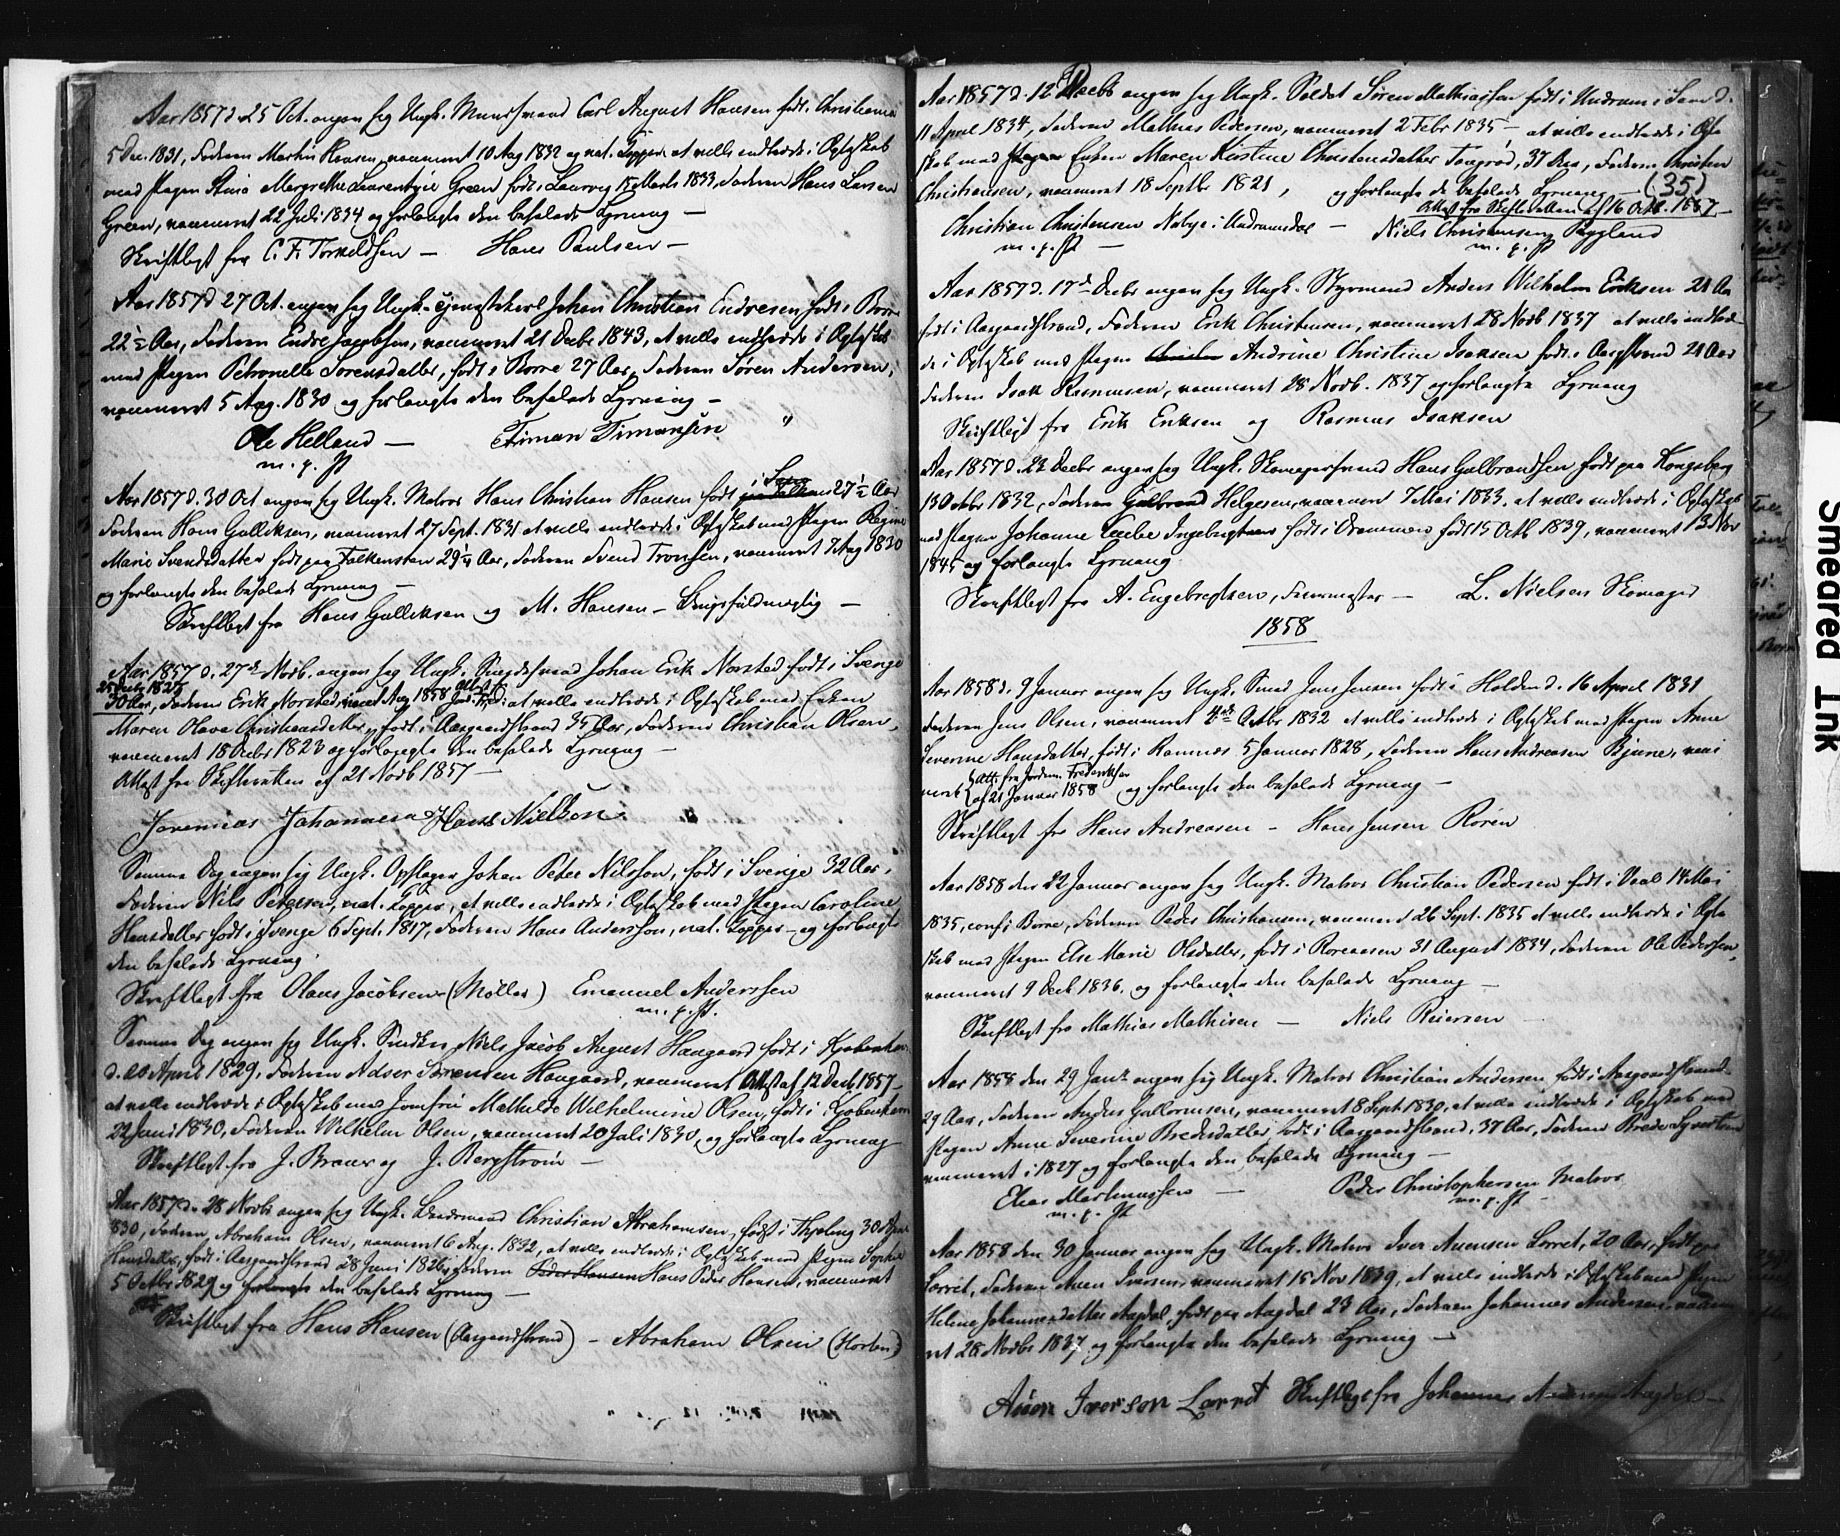 Aar 1857 d. 25 Oct. angav sig Ungk. Muursvend Carl August Hansen født i Christiania
5 Dec. 1831, Faderen Martin Hansen, vaccineret 10 Aug 1832 og nat. Kopper, at ville indtræde i Ægteskab
med Pigen Maria Margrethe Laurentzie Green født i Laurvig 15 Marts 1833, Faderen Hans Larsen
Green, vaccineret 22 Juli 1834 og forlangte den befalede Lysning —
Skriftligt fra C. F. Torkeldsen — Hans Paulsen —
Aar 1857 d 27 Oct. angav sig Ungk. Tjenestekarl Johan Christian Endresen født i Borre
22½ Aar, Faderen Endre Jacobsen, vaccineret 21 Decbr 1843, at ville indtræde i Ægteskab
med Pigen Petronelle Sørensdatter, født i Borre 27 Aar, Faderen Søren Andersen,
vaccineret 5 Aug. 1830 og forlangte den befalede Lysning —
Ole Helland — Timan Timansen "
m. p. P.
Aar 1857 d. 30 Oct angav sig Ungk. Matros Hans Christian Hansen født i Sem 27½ Aar
Faderen Hans Gulliksen, vaccineret 27 Sept. 1831 at ville indtræde i Ægteskab med Pigen Regine
Marie Svendsdatter født paa Falkensten 29¼ Aar, Faderen Svend Tronsen, vaccineret 7 Aug 1830
og forlangte den befalede Lysning —
Skriftligt fra Hans Gulliksen og M. Hansen — Brugsfuldmægtig —
Aar 1857 d. 27de Novb. angav sig Ungk. Smedesvend Johan Erik Norsted født i Sverige
25 Decbr 1827
30 Aar, Faderen Erik Norsted, vacc. Attest fr. Aug 1858 Jord. Fred: at ville indtræde i Ægteskab med Enken
Maren Olava Christiansdatter, født i Aasgaardstrand 35 Aar, Faderen Christian Olsen,
vaccineret 18 Octbr 1823 og forlangte den befalede Lysning —
Attest fra Skifteretten af 21 Novb 1857 —
Joremias Johannesen Hans Nielsen
Samme Dag angav sig Ungk. Opslager Johan Peter Nilsson, født i Sverige 32 Aar,
Faderen Nils Petersen, nat. Kopper, at ville indtræde i Ægteskab med Pigen Caroline
Hansdatter født i Sverige 6 Sept. 1817, Faderen Hans Andersson, nat. Kopper — og forlangte
den befalede Lysning.
Skriftligt fra Olaus Jacobsen (Møller) Emanuel Anderssen
m. p. P.
Samme Dag angav sig Ungk. Snedker Niels Jacob August Haagaard født i Kjøbenhavn
d. 20 April 1829, Faderen Adser Sørensen Haagaard, vaccineret Attest af 12 Decb 1857 —
at ville indtræde i Ægteskab med Jomfru Mathilde Wilhelmine Olsen, født i Kjøbenhavn
22 Juni 1830, Faderen Wilhelm Olsen, vaccineret 20 Juli 1830, og forlangte Lysning —
Skriftligt fra J. Braar og J. Bergstrøm —
Aar 1857 d. 28 Novbr angav sig Ungk. Christian Abrahamsen, født i Thjøling 30 April
1830, Faderen Abraham Olsen, vaccineret 6 Aug. 1832, at ville indtræde i Ægteskab med Pigen Sophie
Hansdatter, født i Aasgaardstrand 28 Juni 1826, Faderen Peder Hansen Hans Peder Hansen, vaccineret
5 Octbr 1829 og forlangte den befalede Lysning —
Skriftligt fra Hans Hansen (Aasgaardstrand) — Abraham Olsen (Horten)
Aar 1857 d. 12 Decbr angav sig Ungk. Soldat Søren Mathiassen født i Undrum i Sem d.
11 April 1834, Faderen Mathias Pedersen, vaccineret 2 Febr 1835 — at ville indtræde i Ægte
skab med Pigen Enken Maren Kirstine Christensdatter Tangrød, 37 Aar, Faderen Christen
Christensen, vaccineret 18 Septbr 1821, og forlangte de befalede Lysning — (35)
Attest fra Skifteretten af 16 Octb. 1857 —
Christian Christensen Nøbye i Undrumdal — Niels Christensen Rygland
m. p. P. — m. p. P.
Aar 1857 d. 17de Decbr angav sig Ungk. Styrmand Anders Wilhelm Eriksen 21 Aar
født i Aasgaardstrand, Faderen Erik Christensen, vaccineret 28 Novb 1837 at ville indtræ-
de i Ægteskab med Pigen Andrine Christine Isaksen født i Aasgstrand 21 Aar
Faderen Isak Rasmussen, vaccineret 28 Novb. 1837 og forlangte Lysning
Skriftligt fra Erik Eriksen og Rasmus Isaksen
Aar 1857 d. 22 Decbr angav sig Ungk. Skomagersvend Hans Gulbrandsen født paa Kongsberg
13 Octbr 1832, Faderen Gulbrand Helgesen, vaccineret 7 Mai 1833, at ville indtræde i Ægteskab
med Pigen Johanne Ingebrigtsen født i Drammen født 15 Octb 1839, vaccineret 13 Nov
1845 og forlangte Lysning
Skriftligt fra A. Engebregtsen, Farvermester — L. Nielsen Skomager
1858
Aar 1858 d. 9 Januar angav sig Ungk. Smed Jens Jensen født i Holden d. 16 April 1831
Faderen Jens Olsen, vaccineret 4de Octbr 1832 at ville indtræde i Ægteskab med Pigen Anne
Severine Hansdatter, født i Ramnæs 5 Januar 1828, Faderen Hans Andreasen Bjune, vacci
neret { Att. fra Jordm. Frederiksen
af 21 Januar 1858 og forlangte den befalede Lysning —
Skriftligt fra Hans Andreasen — Hans Jensen Roren
Aar 1858 den 22 Januar angav sig Ungk. Matros Christian Pedersen født i Vaal 14 Mai
1835, conf. i Borre, Faderen Peder Christiansen, vaccineret 26 Sept. 1835 at ville indtræde i Ægte
skab med Pigen Else Marie Olsdatter, født i Roreaasen 31 August 1834, Faderen Ole Pedersen,
vaccineret 9 Decb 1836, og forlangte den befalede Lysning —
Skriftligt fra Mathias Mathisen — Niels Reiersen —
Aar 1858 den 29 Janr angav sig Ungk. Matros Christian Andersen født i Aasgaardstrand
29 Aar, Faderen Anders Gullormsen, vaccineret 8 Sept. 1830, at ville indtræde i Ægteskab med
Pigen Anne Severine Bredesdatter født i Aasgaardstrand, 37 Aar, Faderen Brede Syvertsen
vaccineret i 1827 og forlangte den befalede Lysning —
Elias Marthinussen — Peder Christophersen Matros
m. p. P. m. p. P. —
Aar 1858 den 30 Januar angav sig Ungk. Matros Iver Auensen Lørret, 20 Aar, født paa
Lørret, Faderen Auen Iversen, vaccineret 15 Nov 1839, at ville indtræde i Ægteskab med Pigen
Helene Johannesdatter Aagdal, født paa Aagdal 23 Aar, Faderen Johannes Andersen, vaccine
ret 28 Novbr 1837 og forlangte den befalede Lysning —
Auon Iverson Lørret Skriftligt fra Johannes Andersen Aagdal —
Smeared Ink